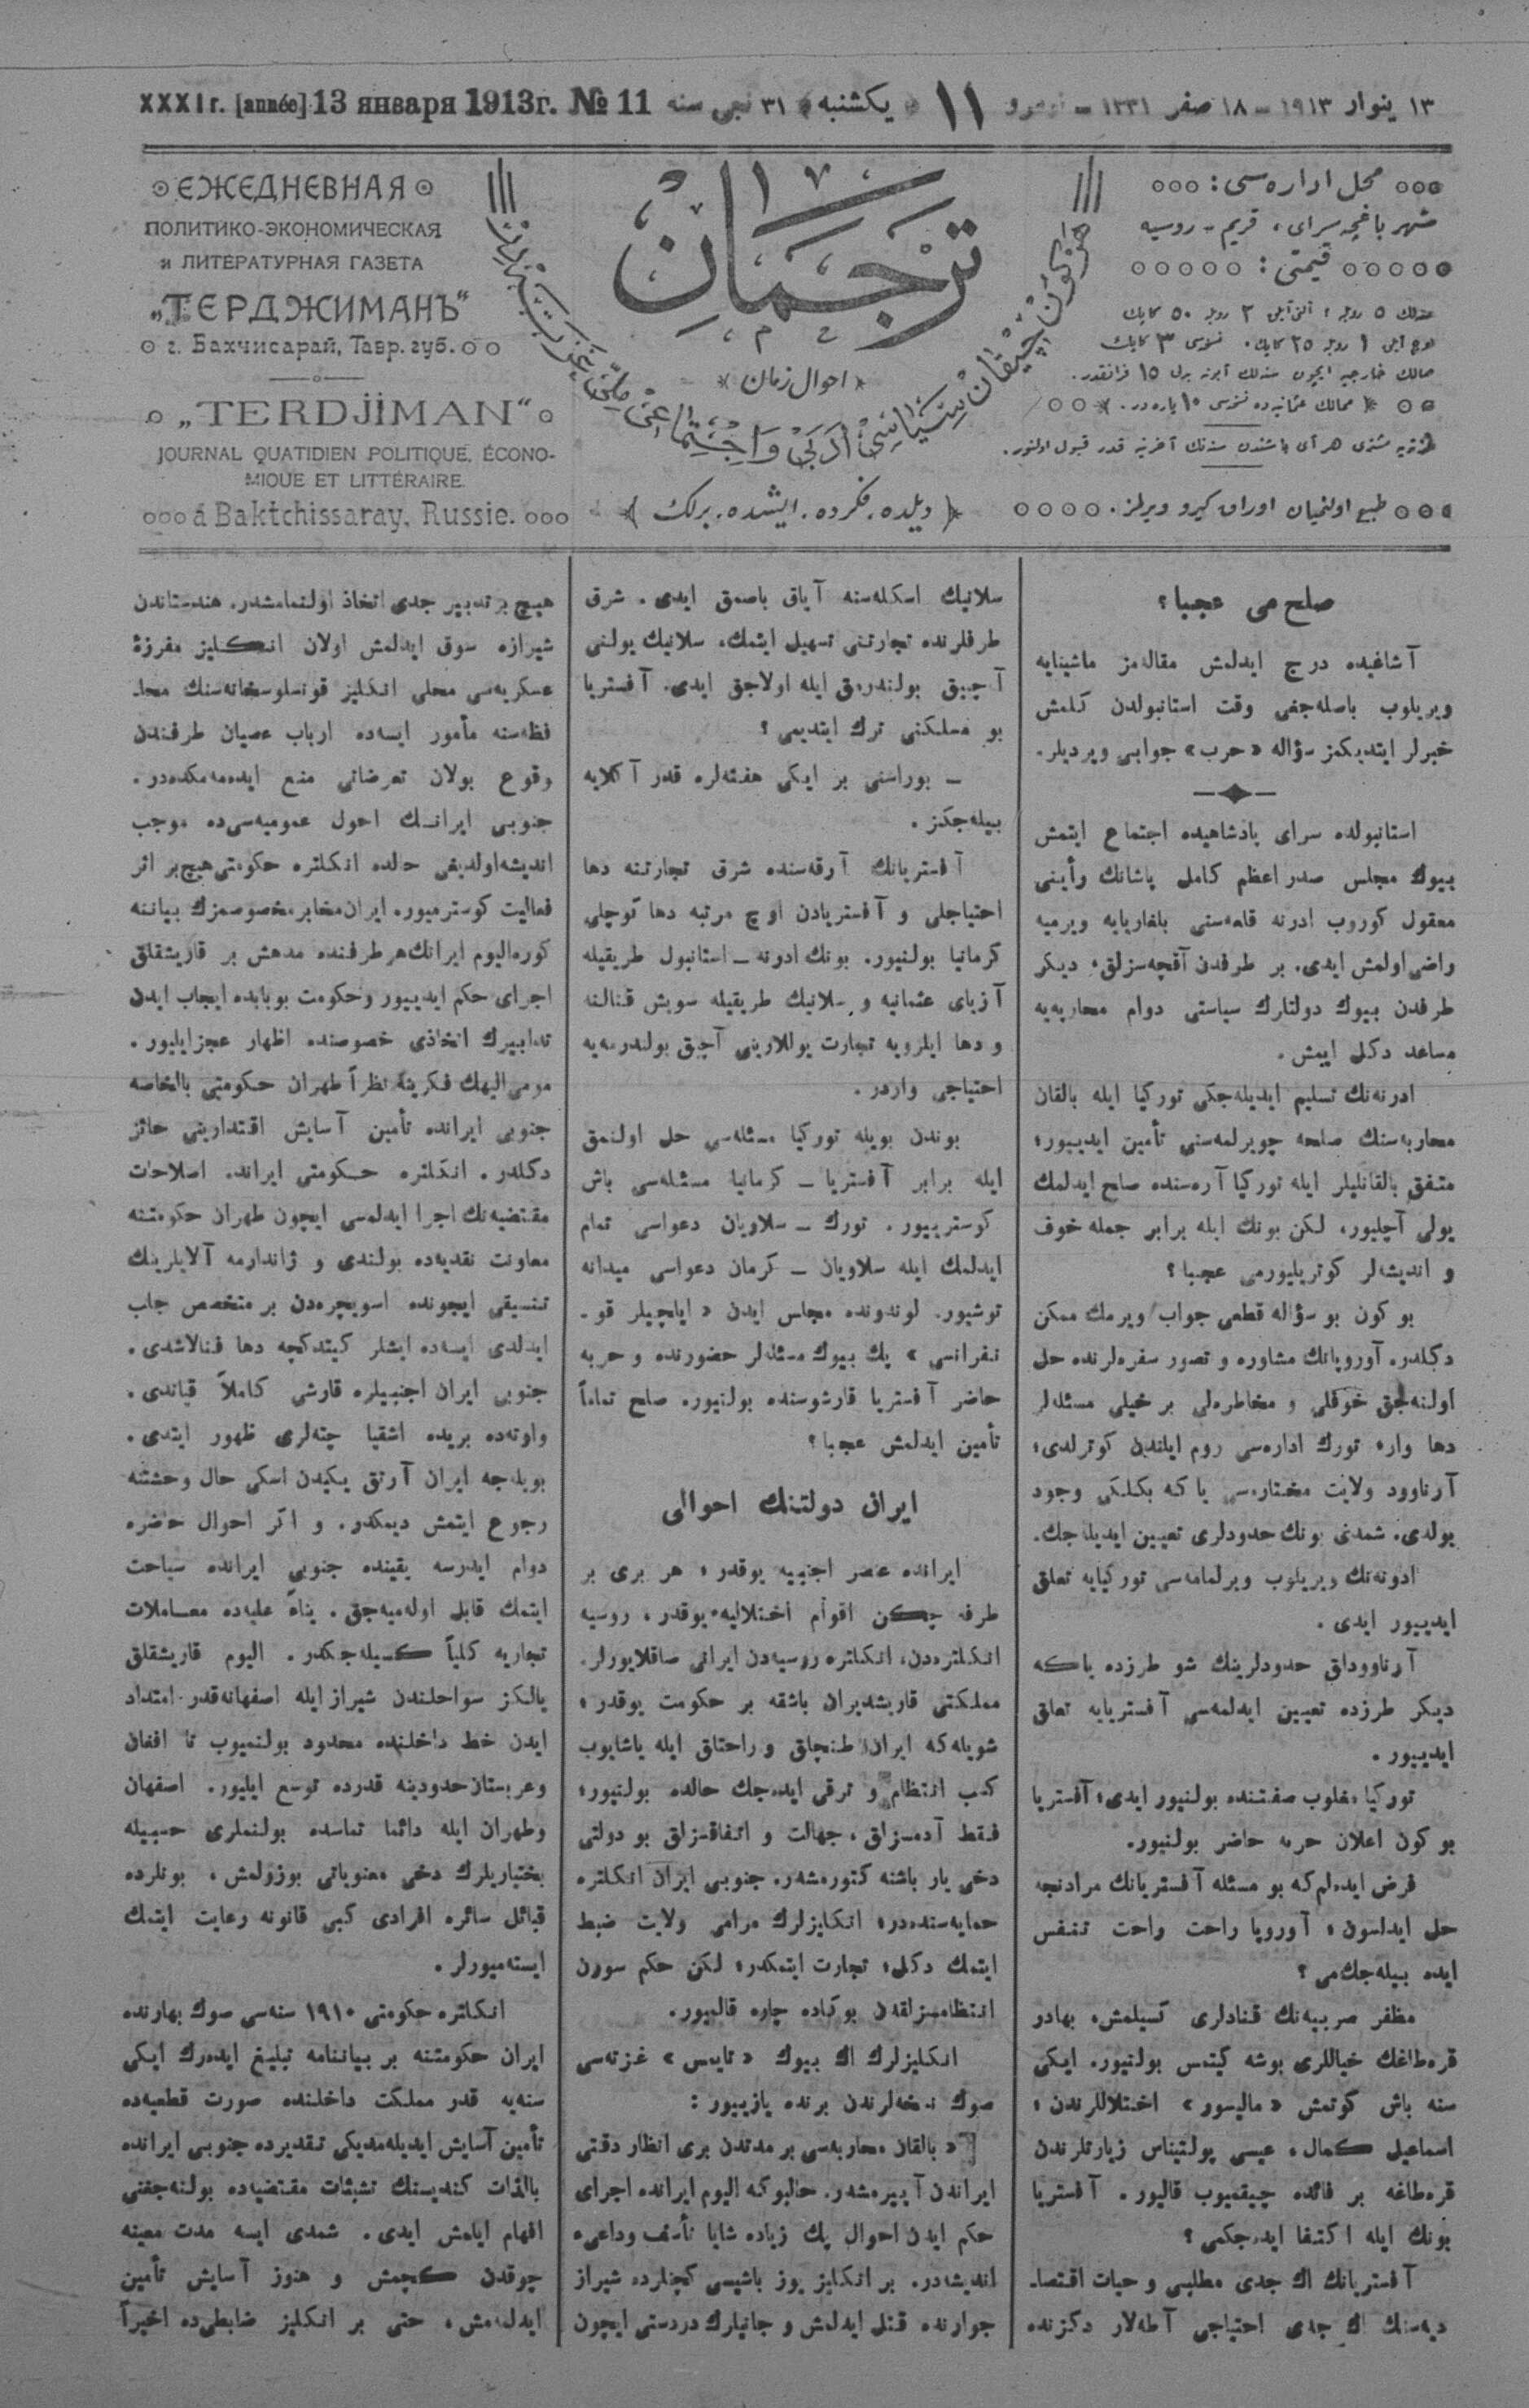 XXXI г. [année] 13 января 1913г. № 11
۱۳ ینوار ۱۹۱۳ – ۱۸ صفر ۱۳۳۱ – نومرو ۱۱ یکشنبه ۳۱ نجی سنه
ЕЖЕДНЕВНАЯ
ПОЛИТИКО-ЭКОНОМИЧЕСКАЯ
и ЛИТЕРАТУРНАЯ ГАЗЕТА
„ТЕРДЖИМАНЪ“
г. Бахчисарай, Тавр. губ.
„TERDJIMAN“
JOURNAL QUATIDIEN POLITIQUE, ÉCONO-
MIQUE ET LITTÉRAIRE.
á Baktchissaray, Russie.
ترجمان
احوال زمان
هر کون چیقان سیاسی ادبی و اجتماعی
﴿ دیلده، فکرده، ایشده، برلك ﴾
محل اداره‌سی:
شهر باغچه سرای، قریم - روسیه
قیمتی:
سنه‌لك ۵ روبله ؛ آلتی آیلق ۳ روبله ۵۰ کاپك
اوچ آیلق ۱ روبله ۲۵ کاپك. نسخه‌سی ۳ کاپك
ممالك خارجیه ایچون سنه‌لك آبونه بدلی ۱۵ فرانقدر.
ممالك عثمانیه‌ده نسخه‌سی ۱۰ پاره‌در.
غزته‌یه مشتری هر آی باشندن سنه‌نك آخرینه قدر قبول اولنور.
طبع اولنمیان اوراق کیرو ویرلمز.
صلح می عجبا؟
آشاغیده درج ایدلمش مقاله‌مز ماشینایه
ویریلوب باصله‌جغی وقت استانبولدن کلمش
خبرلر ایتدیکمز سؤاله «حرب» جوابی ویردیلر.
استانبولده سرای پادشاهیده اجتماع ایتمش
بیوك مجلس صدر اعظم کامل پاشانك رأینی
معقول کوروب ادرنه قلعه‌سنی بلغاریایه ویرمیه
راضی اولمش ایدی. بر طرفدن آقچه‌سزلق، دیکر
طرفدن بیوك دولتلرك سیاستی دوام محاربه‌یه
مساعد دکل ایمش.
ادرنه‌نك تسلیم ایدیله‌جکی تورکیا ایله بالقان
محاربه‌سنك صلحه چویرلمه‌سنی تأمین ایدییور؛
متفق بالقانلیلر ایله تورکیا آره‌سنده صلح ایدلمك
یولی آچلیور، لکن بونك ایله برابر جمله خوف
و اندیشه‌لر کوتریلیورمی عجبا؟
بو کون بو سؤاله قطعی جواب ویرمك ممکن
دکلدر. آوروپانك مشاوره و تصور سفره‌لرنده حل
اولنه‌جق خوفلی و مخاطره‌لی بر خیلی مسئله‌لر
دها وار، تورك اداره‌سی روم ایلندن کوترلدی؛
آرناوود ولایت مختاره‌سی یا که بکلکی وجود
بولدی. شمدی بونك حدودلری تعیین ایدیله‌جك.
ادرنه‌نك ویریلوب ویرلمامه‌سی تورکیایه تعلق
ایدییور ایدی.
آرناوودلق حدودلرینك شو طرزده یا که
دیکر طرزده تعیین ایدلمه‌سی آفستریایه تعلق
ایدییور.
تورکیا مغلوب صفتنده بولنیور ایدی؛ آفستریا
بو کون اعلان حربه حاضر بولنیور.
فرض ایده‌لم که بو مسئله آفستریانك مرادنجه
حل ایدلسون؛ آوروپا راحت راحت تنفس
ایده بیله‌جك‌می؟
مظفر صربیه‌نك قنادلری کسیلمش، بهادر
قره‌طاغك خیاللری بوشه کیتمس بولنیور. ایکی
سنه باش کوتمش «مالیسور» اختلاللرندن،
اسماعیل کمال، عیسی پولتیناس زیارتلرندن
قره‌طاغه بر فائده چیقمیوب قالیور. آفستریا
بونك ایله اکتفا ایده‌جکمی؟
آفستریانك اك جدی مطلبی و حیات اقتصا-
دیه‌سنك اك جدی احتیاجی آطه‌لار دکزنده
سلانیك اسکله‌سنه آیاق باصمق ایدی. شرق
طرفلرنده تجارتنی تسهیل ایتمك، سلانیك یولنی
آچیق بولندرمق ایله اولاجق ایدی. آفستریا
بو مسلکنی ترك ایتدیمی؟
– بوراسنی بر ایکی هفته‌لره قدر آکلایه
بیله‌جکز.
آفستریانك آرقه‌سنده شرق تجارتنه دها
احتیاجلی و آفستریادن اوچ مرتبه دها کوچلی
کرمانیا بولنیور. بونك ادرنه – استانبول طریقیله
آزیای عثمانیه و سلانیك طریقیله سویش قنالنه
و دها ایلرویه تجارت یوللارینی آچیق بولندرمه‌یه
احتیاجی واردر.
بوندن بویله تورکیا مسئله‌سی حل اولنمق
ایله برابر آفستریا – کرمانیا مسئله‌سی باش
کوسترییور. تورك – سلاویان دعواسی تمام
ایدلمك ایله سلاویان – کرمان دعواسی میدانه
توشیور. لوندونده مجلس ایدن «ایلچیلر قو-
نفرانسی» پك بیوك مسئله‌لر حضورنده و حربه
حاضر آفستریا قارشوسنده بولنیور. صلح تماماً
تأمین ایدلمش عجبا؟
ایران دولتنك احوالی
ایرانده عنصر اجنبیه یوقدر؛ هر بری بر
طرفه چکن اقوام اختلالیه یوقدر، روسیه
انکلتره‌دن، انکلتره روسیه‌دن ایرانی صاقلایورلر.
مملکتی قاریشدیران باشقه بر حکومت یوقدر؛
شویله که ایران طنچلق و راحتلق ایله یاشایوب
کسب انتظام و ترقی ایده‌جك حالده بولنیور؛
فقط آدمسزلق، جهالت و اتفاقسزلق بو دولتی
دخی یار باشنه کتورمشدر. جنوبی ایران انکلتره
حمایه‌سنده‌در؛ انکلیزلرك مرامی ولایت ضبط
ایتمك دکل؛ تجارت ایتمکدر؛ لکن حکم سورن
انتظامسزلقدن بو کاده چاره قالمیور.
انکلیزلرك اك بیوك «تایمس» غزته‌سی
صوك نسخه‌لرندن برنده یازییور:
«بالقان محاربه‌سی بر مدتدن بری انظار دقتی
ایراندن آییرمشدر. حالبوکه الیوم ایرانده اجرای
حکم ایدن احوال پك زیاده شایان تأسف و داعیء
اندیشه‌در. بر انکلیز یوز باشیسی کچنلرده شیراز
جوارنده قتل ایدلمش و جانیلرك دردستی ایچون
هیچ بر تدبیر جدی اتخاذ اولنمامشدر. هندستاندن
شیرازه سوق ایدلمش اولان انکلیز مفرزهٔ
عسکریه‌سی محلی انکلیز قونسلوسخانه‌سنك محا-
فظه‌سنه مأمور ایسه‌ده ارباب عصیان طرفندن
وقوع بولان تعرضاتی منع ایده‌مه‌مکده‌در.
جنوبی ایرانك احول عمومیه‌سی‌ده موجب
اندیشه اولدیغی حالده انکلتره حکومتی هیچ بر اثر
فعالیت کوسترمیور. ایران مخابر مخصوصمزك بیاننه
کوره الیوم ایرانك هر طرفنده مدهش بر قاریشقلق
اجرای حکم ایدییور و حکومت بو بابده ایجاب ایدن
تدابیرك اتخاذی خصوصنده اظهار عجز ایلیور.
مومی الیهك فکرینه نظراً طهران حکومتی بالخاصه
جنوبی ایرانده تأمین آسایش اقتدارینی حائز
دکلدر. انکلتره حکومتی ایرانده اصلاحات
مقتضیه‌نك اجرا ایدلمسی ایچون طهران حکومتنه
معاونت نقدیه‌ده بولندی و ژاندارمه آلایلرینك
تنسیقی ایچونده اسویچره‌دن بر متخصص جلب
ایدلدی ایسه‌ده ایشلر کیتدکچه دها فنالاشدی.
جنوبی ایران اجنبیلره قارشی کاملاً قپاندی.
واوته‌ده بریده اشقیا چته‌لری ظهور ایتدی.
بویله‌جه ایران آرتق یکیدن اسکی حال وحشتنه
رجوع ایتمش دیمکدر. و اکر احوال حاضره
دوام ایدرسه یقینده جنوبی ایرانده سیاحت
ایتمك قابل اوله‌میه‌جق. بناءً علیه‌ده معاملات
تجاریه کلیاً کسیله‌جکدر. الیوم قاریشقلق
یالکز سواحلندن شیراز ایله اصفهانه قدر امتداد
ایدن خط داخلنده محدود بولنمیوب تا افغان
وعربستان حدودینه قدرده توسع ایلیور. اصفهان
وطهران ایله دائما تماسده بولنملری حسبیله
بختیاریلرك دخی معنویاتی بوزولمش، بونلرده
قبائل سائره افرادی کبی قانونه رعایت ایتمك
ایسته‌میورلر.
انکلتره حکومتی ۱۹۱۰ سنه‌سی صوك بهارنده
ایران حکومتنه بر بیاننامه تبلیغ ایده‌رك ایکی
سنه‌یه قدر مملکت داخلنده صورت قطعیه‌ده
تأمین آسایش ایدیله‌مدیکی تقدیرده جنوبی ایرانده
بالذات کندیسنك تشبثات مقتضیه‌ده بولنه‌جغنی
افهام ایلمش ایدی. شمدی ایسه مدت معینه
چوقدن کچمش و هنوز آسایش تأمین
ایدلمه‌مش، حتی بر انکلیز ضابطی‌ده اخیراً